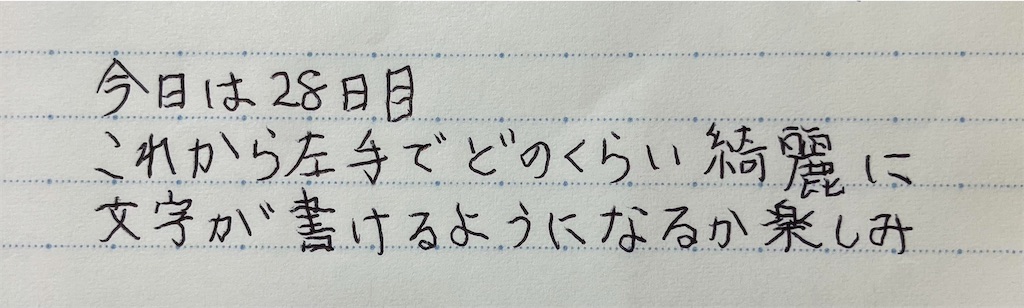 今日は28日目
これから左手でどのくらい綺麗に
文字が書けるようになるか楽しみ